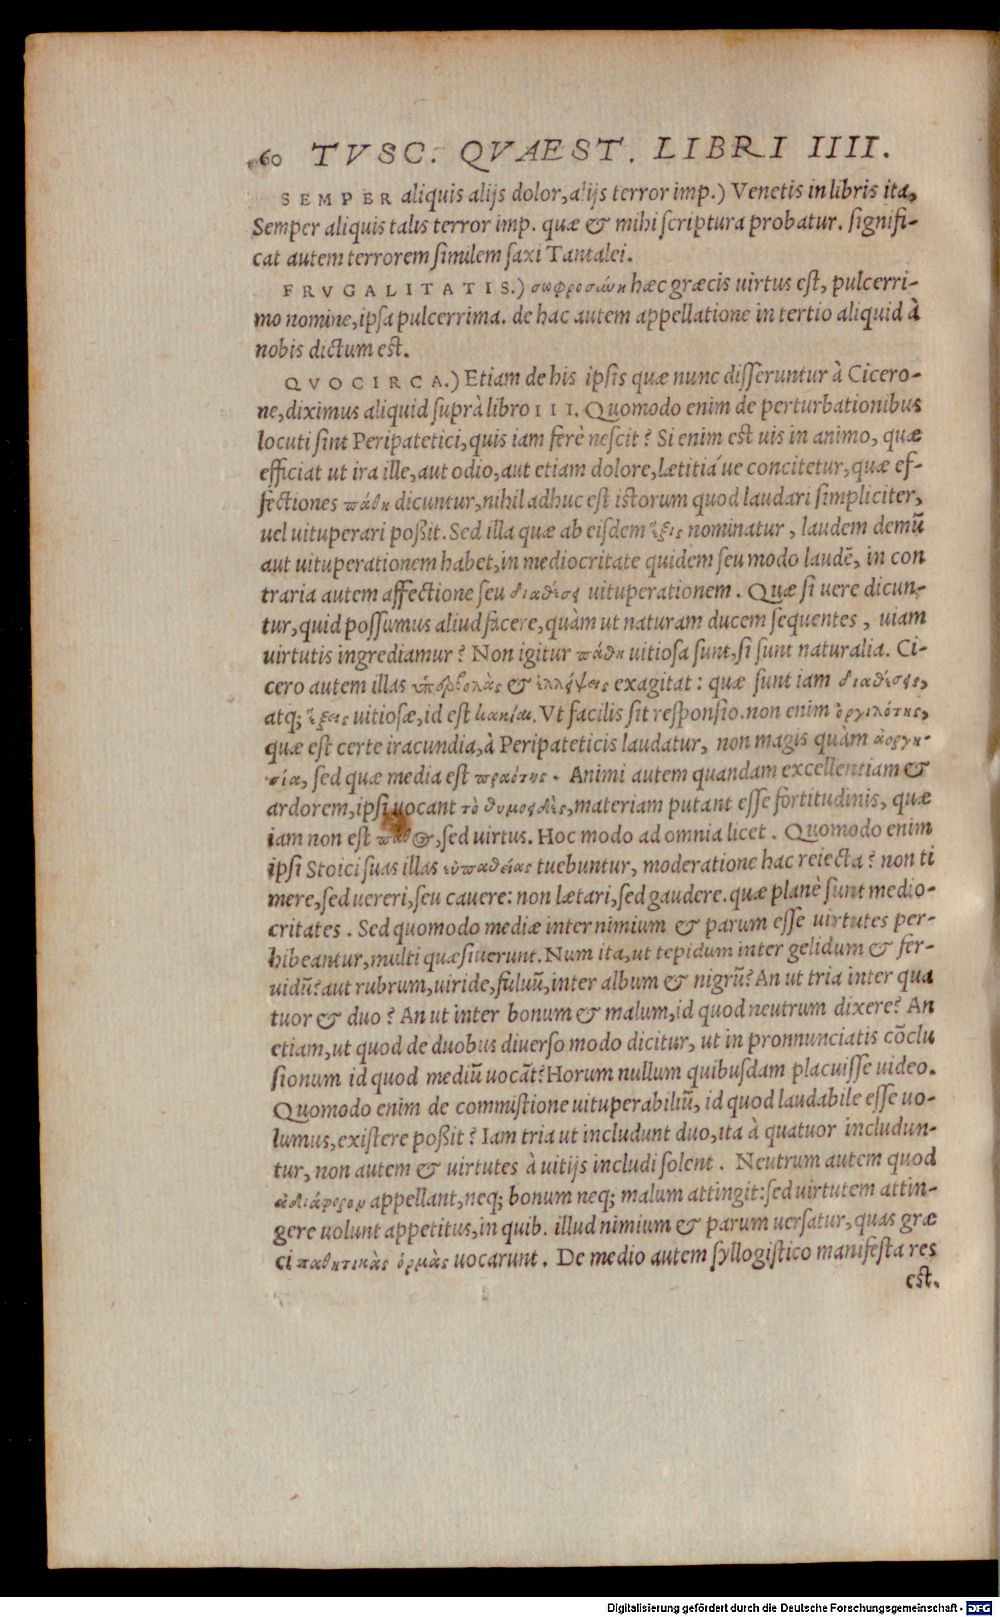 60 TVSC. QVAEST. LIBRI IIII.
SEMPER aliquis alijs dolor, alijs terror imp.) Venetis in libris ita,
Semper aliquis talis terror imp. quæ & mihi scriptura probatur. signifi-
cat autem terrorem similem saxi Tantalei.
FRVGALITATIS.) σωφροσύνη hæc græcis uirtus est, pulcerri-
mo nomine, ipsa pulcerrima. de hac autem appellatione in tertio aliquid à
nobis dictum est.
QVOCIRCA.) Etiam de his ipsis quæ nunc disseruntur à Cicero-
ne, diximus aliquid suprà libro III. Quomodo enim de perturbationibus
locuti sint Peripatetici, quis iam ferè nescit? Si enim est uis in animo, quæ
efficiat ut ira ille, aut odio, aut etiam dolore, lætitiá ue concitetur, quæ ef-
fectiones πάθη dicuntur, nihil adhuc est istorum quod laudari simpliciter,
uel uituperari poßit. Sed illa quæ ab eisdem ἕξις nominatur, laudem demū
aut uituperationem habet, in mediocritate quidem seu modo laudē, in con
traria autem affectione seu διαθέσει uituperationem. Quæ si uere dicun-
tur, quid possumus aliud facere, quàm ut naturam ducem sequentes, uiam
uirtutis ingrediamur? Non igitur πάθη uitiosa sunt, si sunt naturalia. Ci-
cero autem illas ὑπερβολὰς & ἐλλήψεις exagitat: quæ sunt iam διαθέσεις,
atq; ἕξεις uitiosæ, id est κακίαι. Vt facilis sit responsio. non enim ὀργιλότης,
quæ est certe iracundia, à Peripateticis laudatur, non magis quàm ἀοργη-
σία, sed quæ media est πραότης. Animi autem quandam excellentiam &
ardorem, ipsi uocant τὸ θυμοειδὲς, materiam putant esse fortitudinis, quæ
iam non est πάθος, sed uirtus. Hoc modo ad omnia licet. Quomodo enim
ipsi Stoici suas illas εὐπαθείας tuebuntur, moderatione hac reiecta? non ti
mere, sed uereri, seu cauere: non lætari, sed gaudere. quæ planè sunt medio-
critates. Sed quomodo mediæ inter nimium & parum esse uirtutes per-
hibeantur, multi quæsiuerunt. Num ita, ut tepidum inter gelidum & fer-
uidū? aut rubrum, uiride, fuluū, inter album & nigrū? An ut tria inter qua
tuor & duo? An ut inter bonum & malum, id quod neutrum dixere? An
etiam, ut quod de duobus diuerso modo dicitur, ut in pronnunciatis cōclu
sionum id quod mediū uocāt? Horum nullum quibusdam placuisse uideo.
Quomodo enim de commistione uituperabiliū, id quod laudabile esse uo-
lumus, existere poßit? Iam tria ut includunt duo, ita à quatuor includun-
tur, non autem & uirtutes à uitijs includi solent. Neutrum autem quod
ἀδιάφορον appellant, neq; bonum neq; malum attingit: sed uirtutem attin-
gere uolunt appetitus, in quib. illud nimium & parum uersatur, quas græ
ci παθητικὰς ὁρμὰς uocarunt. De medio autem syllogistico manifesta res
est.
Digitalisierung gefördert durch die Deutsche Forschungsgemeinschaft - DFG